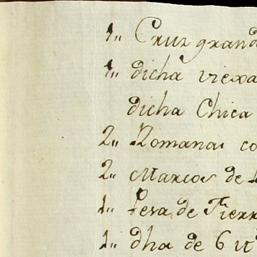 1,, Cruz grand
1,, dicha viexa
dicha Chica
2,, Romanas co
2,, Marcos de
1,, Pesa de Fierr
1,, dha de 6